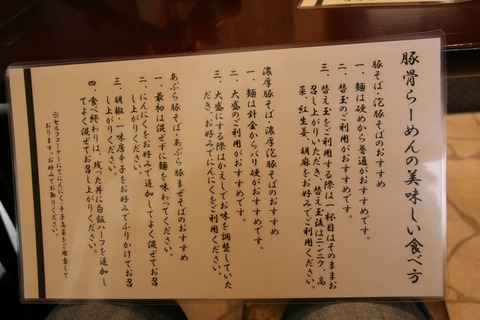 豚骨らーめんの美味しい食べ方
豚そば、泡豚そばのおすすめ
一、麺は硬めから普通がおすすめです。
二、替玉のご利用がおすすめです。
三、替え玉をご利用する際は一杯目はそのままお
召し上がりいただき、替え玉後はニンニク、高
菜、紅生姜、胡麻をお好みでご利用ください。
濃厚豚そば、濃厚泡豚そばのおすすめ
一、麺は針金からバリ硬がおすすめです。
二、大盛のご利用がおすすめです。
三、大盛にする際はかえしでお味を調整していた
だき、お好みでにんにくをご利用ください。
あぶら豚そば、あぶら豚まぜそばのおすすめ
一、最初は混ぜずに麺を味わってください。
二、にんにくをお好みで追加してよく混ぜてお召
し上がりください。
三、胡椒、一味唐辛子をお好みでふりかけてお召
し上がりください。
四、食べ終わりは、残った丼に白飯ハーフを追加し
てよく混ぜてお召し上がりください。
※セルフコーナーにてにんにく・辛子高菜をご用意して
おります。お好みでお取りください。